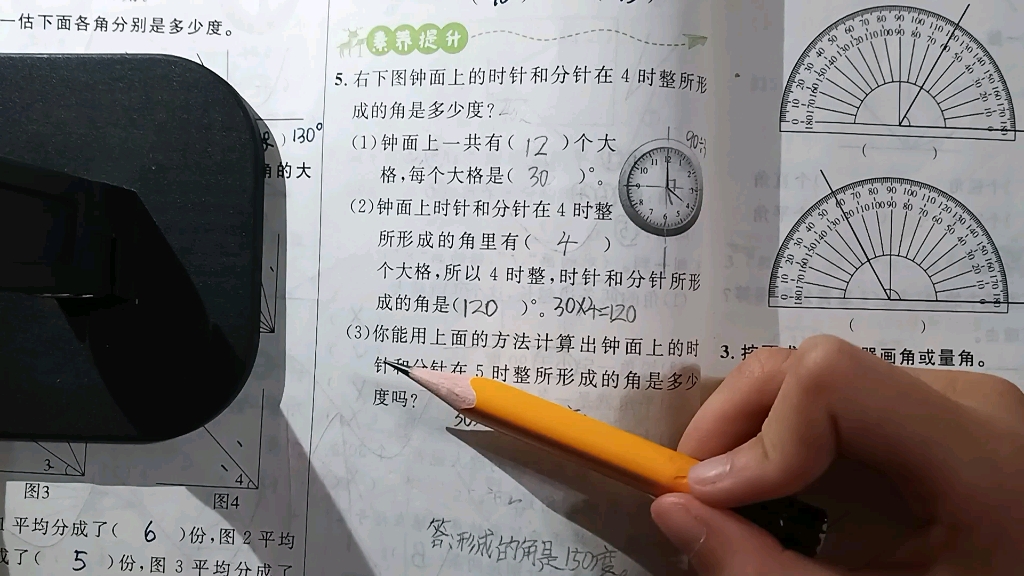 一估下面各角分别是多少度。
)130°
角的大
图3
图4
平均分成了( 6 )份,图2平均
成了( 5 )份,图3平均分成了
素养提升
5.右下图钟面上的时针和分针在4时整所形
成的角是多少度?
(1)钟面上一共有( 12 )个大
格,每个大格是( 30 )°。
(2)钟面上时针和分针在4时整
所形成的角里有( 4 )
个大格,所以4时整,时针和分针所形
成的角是(120 )°。30×4=120
(3)你能用上面的方法计算出钟面上的时
针和分针在5时整所形成的角是多少
度吗?
答:形成的角是150度。
( )
( )
画角或量角。